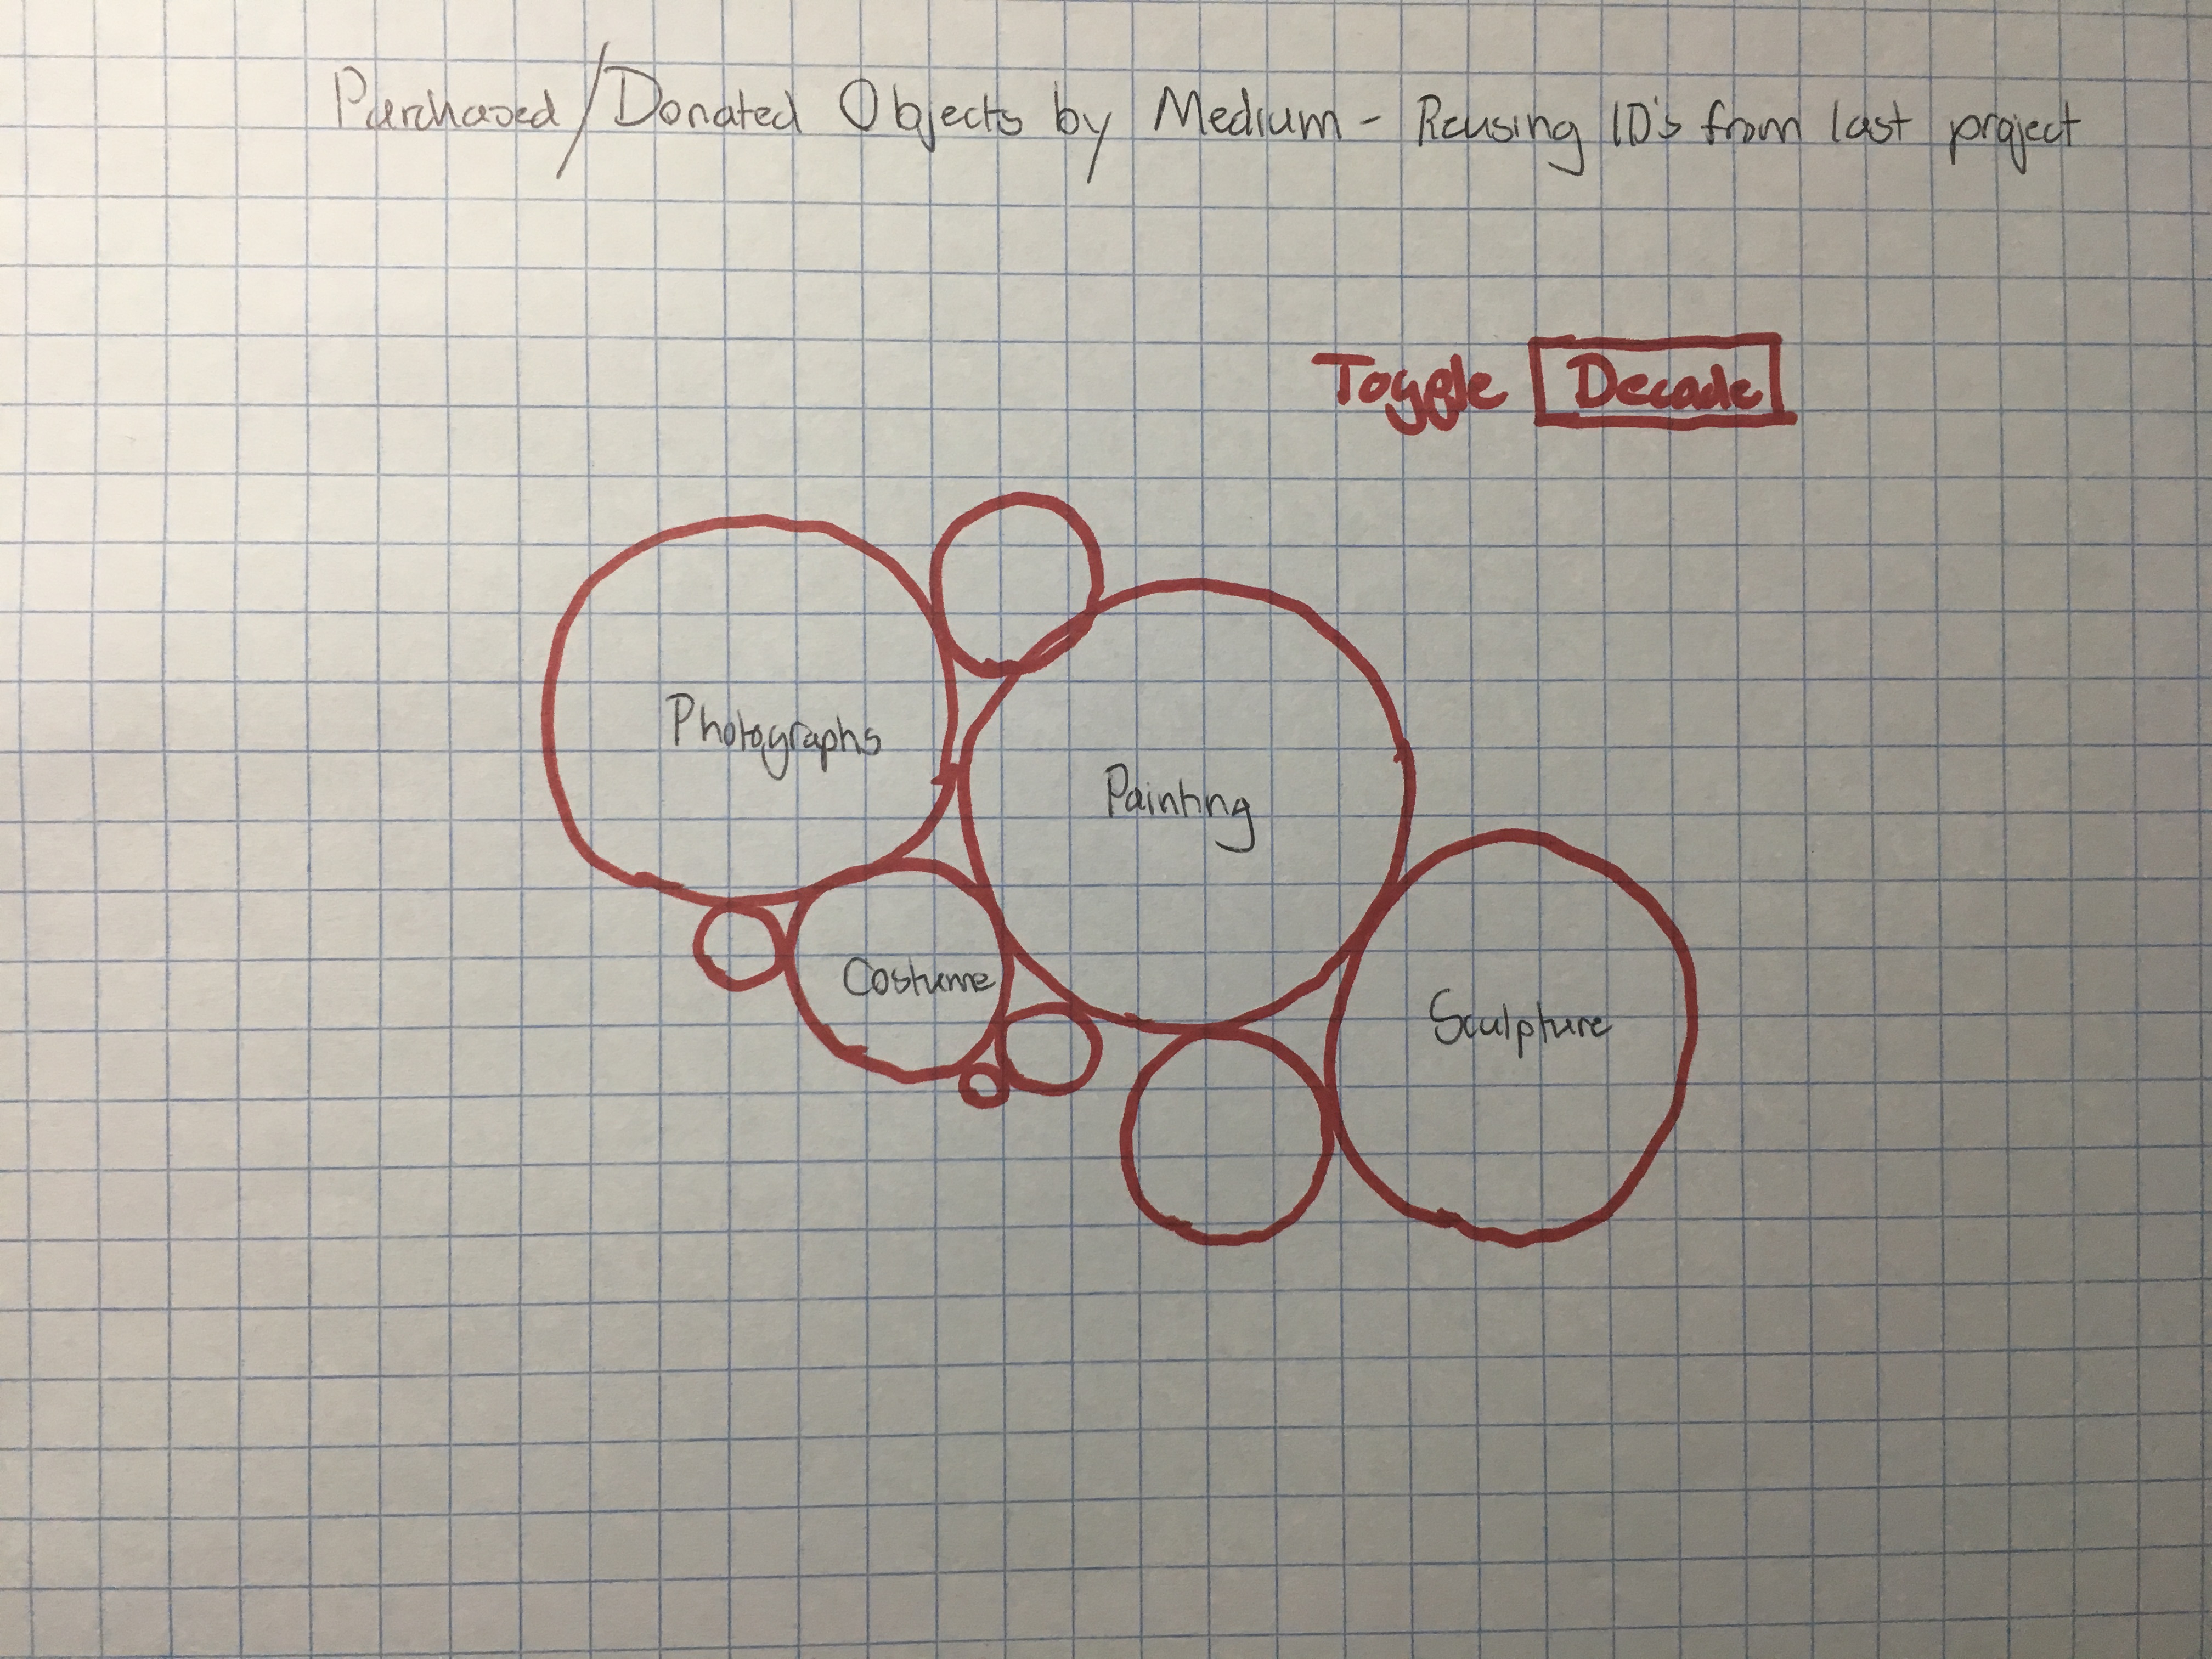 Purchased/Donated Objects by Medium - Reusing ID's from last project
Toggle Decade
Photographs
Painting
Costume
Sculpture